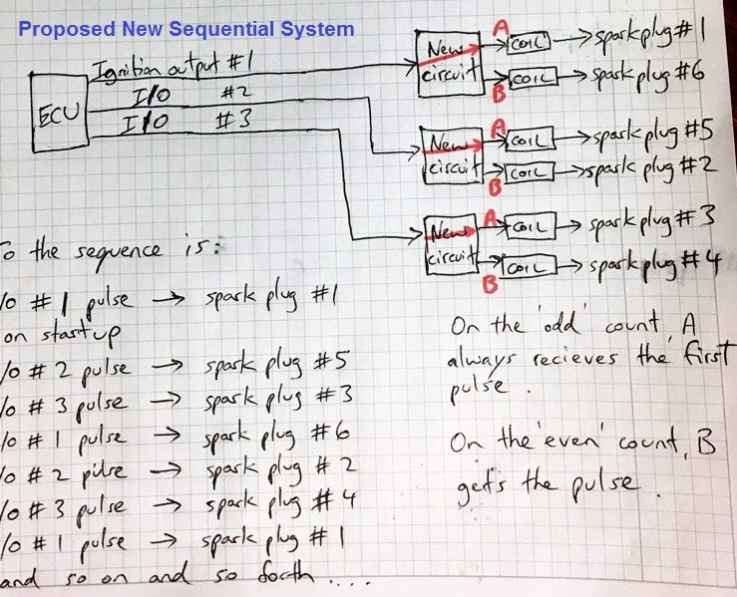 Proposed New Sequential System
ECU
Ignition output #1
I/O #2
I/O #3
New circuit
A
COIL
spark plug # 1
B
COIL
spark plug #6
New circuit
A
COIL
spark plug #5
B
COIL
spark plug #2
New circuit
A
COIL
spark plug # 3
B
COIL
spark plug # 4
To the sequence is:
/o #1 pulse → spark plug #1
on startup
/o # 2 pulse → spark plug #5
/o # 3 pulse → spark plug #3
/o # 1 pulse → spark plug #6
/o # 2 pulse → spark plug # 2
/o # 3 pulse → spark plug # 4
/o # 1 pulse → spark plug # 1
and so on and so forth ....
On the 'odd' count, A
always recieves the first
pulse.
On the 'even' count, B
gets the pulse.